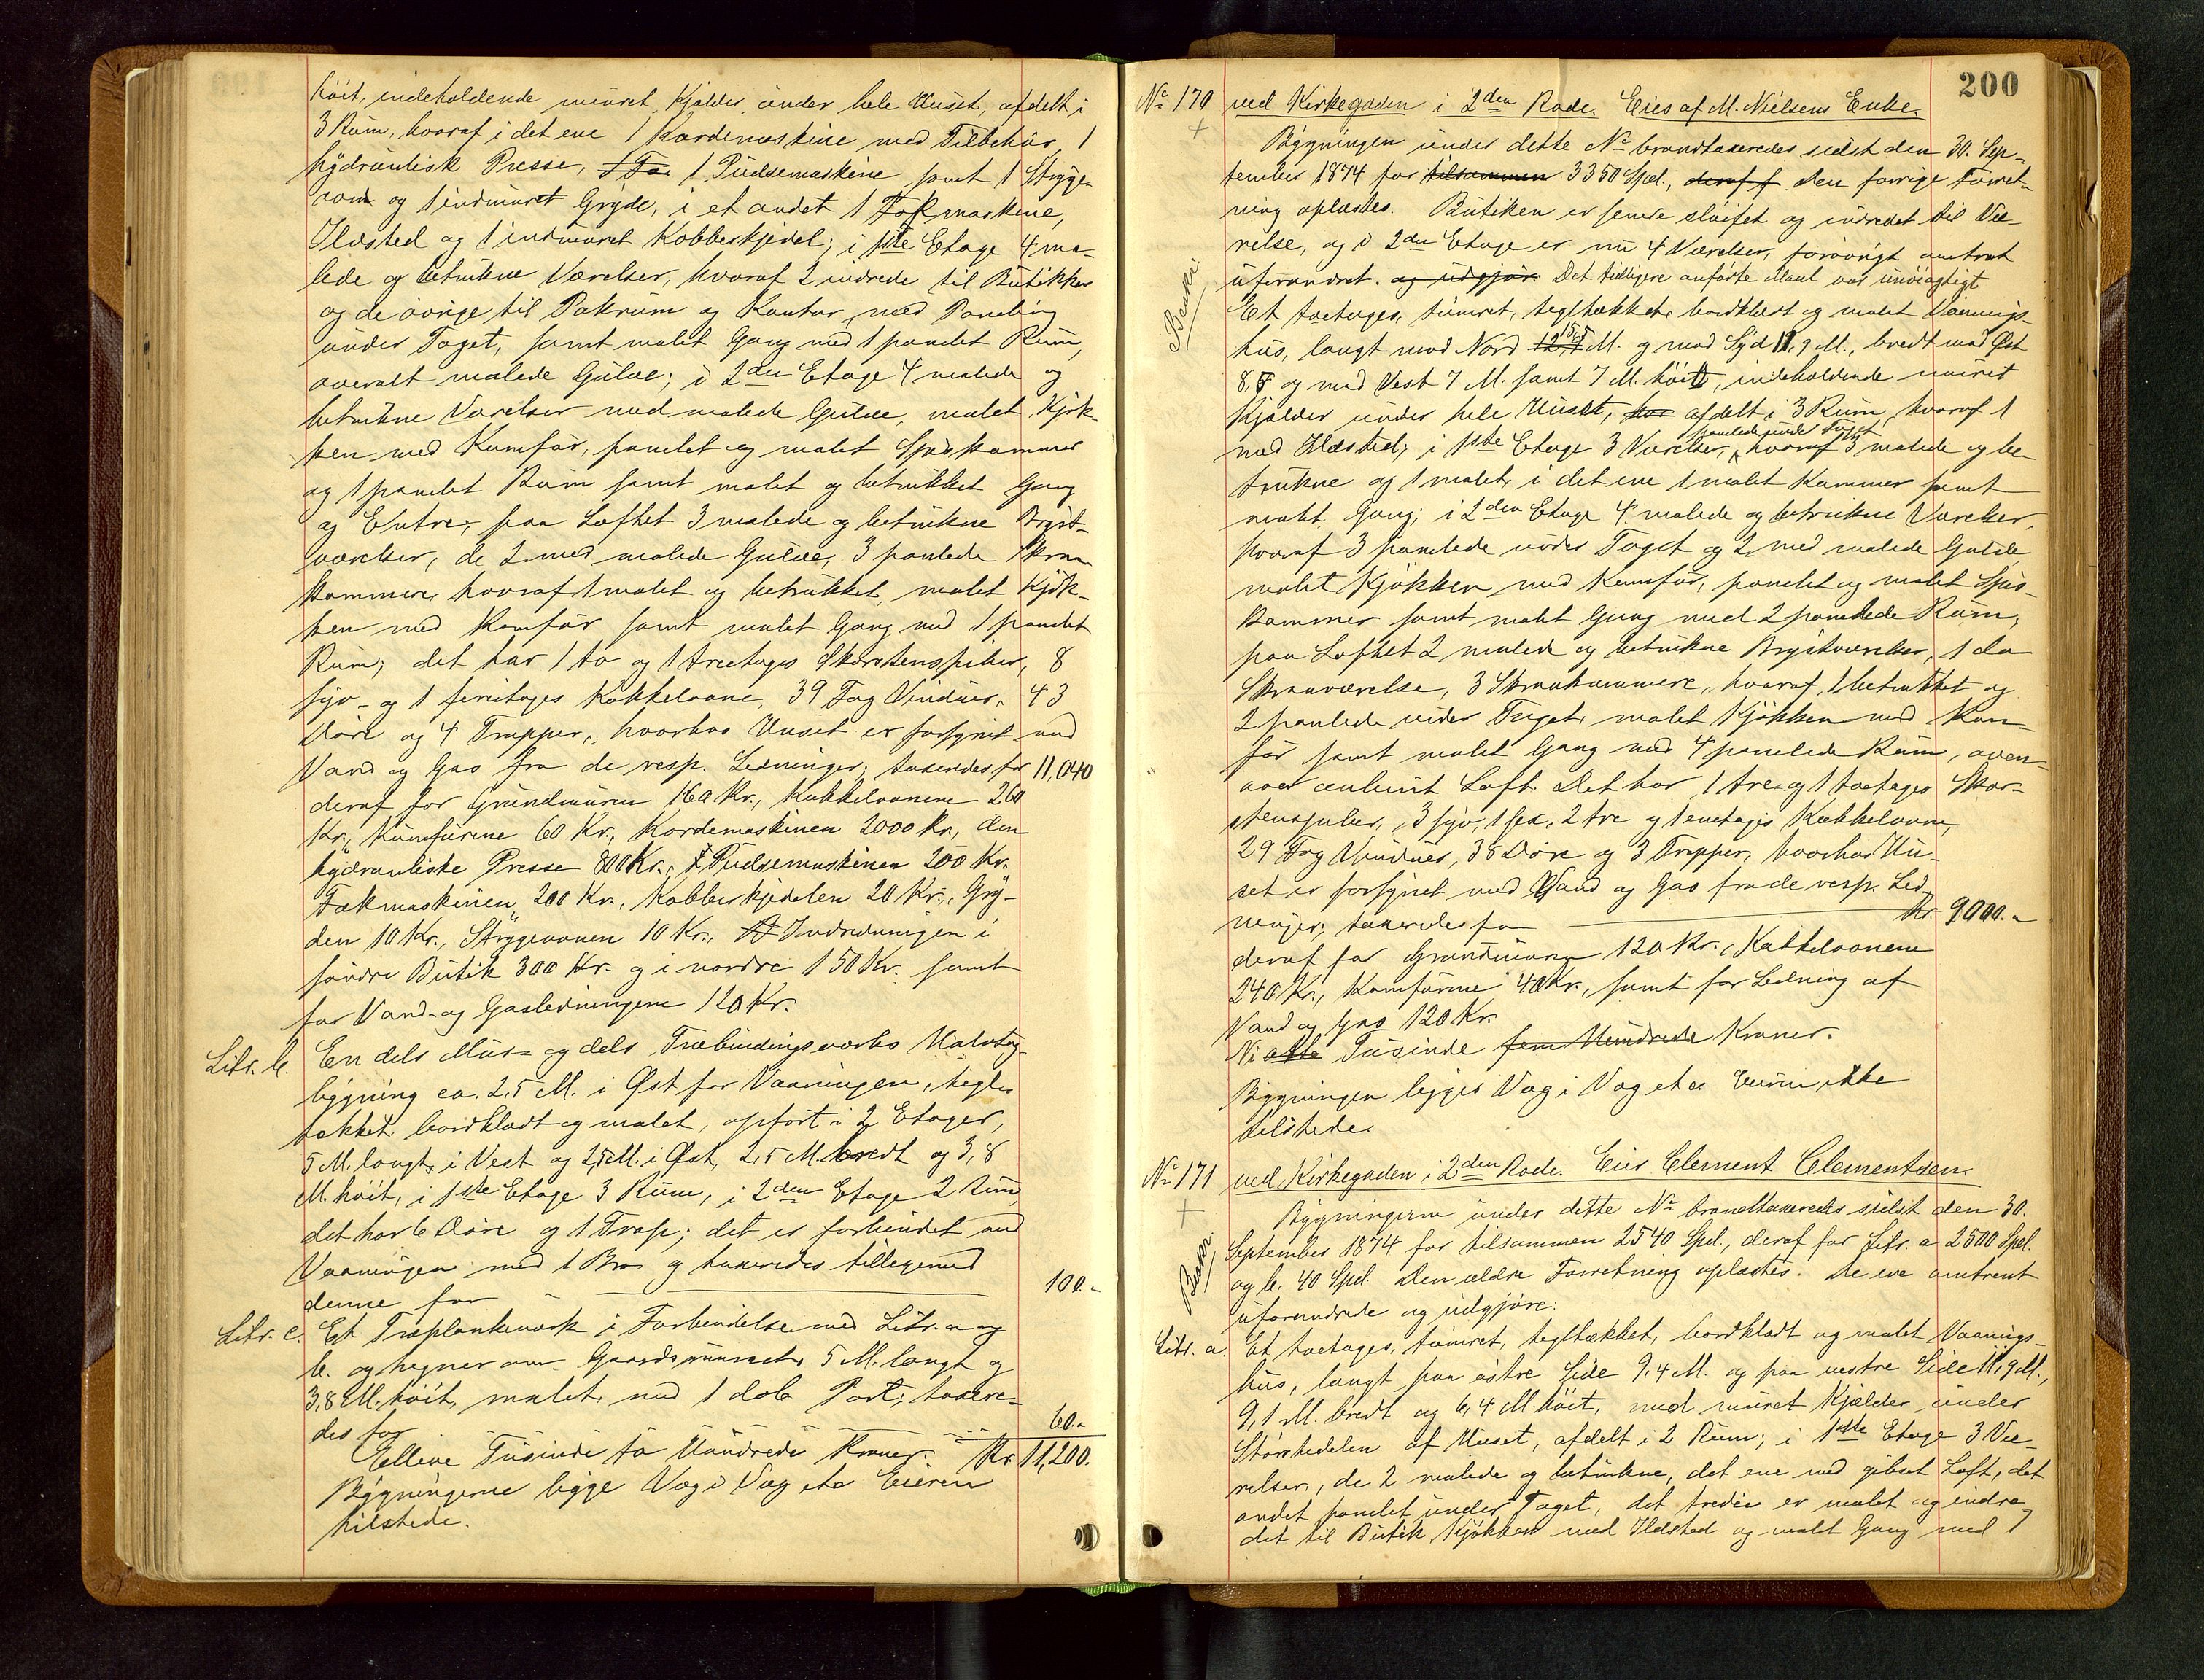 höit, indeholdende muret Kjælder under hele Huset, afdelt i
3 Rum, hvoraf i det ene 1 Kardemaskine med Tilbehör, 1
hydraulisk Presse, 1 Fa 1 Pudsemaskine samt 1 Stryge-
rovn og 1 indmuret Gryde, i et andet 1 Fakmaskine,
Ildsted og 1 indmuret Kobberkjedel; i 1ste Etage 4 ma-
lede og betrukne Værelser, hvoraf 2 indrede til Butikker
og de övrige til Pakrum og Kontor med Paneling
under Taget, samt malet Gang med 1 panelet Rum,
overalt malede Gulve; i 2den Etage 4 malede og
betrukne Værelser med malede Gulve, malet Kjök-
ken med Komfur, panelet og malet Spiskammer
og 1 panelet Rum samt malet og betrukket Gang
og Entre; paa Loftet 3 malede og betrukne Bryst-
værelser, de 2 med malede Gulve, 3 panlede Skraa-
kammere, hvoraf 1 malet og betrukket, malet Kjök-
ken med Komfur samt malet Gang med 1 panelet
Rum; det har 1 to og 1 treetages Skorstenspiber, 8
syv- og 1 fireetages Kakkelovne, 39 Fag Vinduer, 43
Döre og 4 Trapper, hvorhos Huset er forsynet med
Vand og Gas fra de resp. Ledninger; taxeredes for 11,040
deraf for Grundmuren 160 Kr., Kakkelovnene 260
Kr., Komfurene 60 Kr., Kardemaskinen 2000 Kr., den
hydrauliske Presse 800 Kr., Pudsemaskinen 200 Kr.
Fakmaskinen 200 Kr., Kobberkjedelen 20 Kr., Gry-
den 10 Kr., Strygeovnen 10 Kr., Indredningen i
söndre Butik 300 Kr. og i nordre 150 Kr. samt
for Vand- og Gasledningerne 120 Kr.
Litr. b. En dels Mur- og dels Træbindingsværks Halvtag-
bygning ca. 2,5 M. i Øst for Vaaningen, tegl-
tækket bordklædt og malet, opfört i 2 Etager,
5 M. langt i Vest og 2,5 M. i Øst, 2,5 M. bredt og 3,8
M. höit, i 1ste Etage 3 Rum, i 2den Etage 2 Rum
det har 6 Döre og 1 Trap; det er forbundet med
Vaaningen med 1 Bro og taxeredes tilligemed
denne for 100.-
Litr. c. Et Træplankeværk i Forbindelse med Litr. a og
b. og hegner om Gaardsrummet, 5 M. langt og
3,8 M. höit, malet, med 1 dob. Port; taxere-
des for 60.-
Elleve Tusinde to Hundrede Kroner. Kr. 11,200.
Bygningerne ligge Væg i Væg etc Eieren
tilstede.
200
No 170 ved Kirkegaden i 2den Rode. Eies af M. Nielsens Enke.
Bygningen under dette No brandtaxeredes sidst den 30. Sep-
tember 1874 for tilsammen 3350 Spd., deraf f den forrige Forret-
ning oplæstes. Butiken er senere slöifet og indredet til Væ-
relse, og i 2den Etage er nu 4 Værelser, forövrigt omtrent
uforandret. og udgjör. Det tidligere anförte Maal var unöiagtigt
Beskr.
Et toetages, tömret, tegltækket, bordklædt og malet Vaanings-
hus, langt mod Nord 12,1 15,5 M. og mod Syd 11,9 M., bredt mod Øst
8,5 og mod Vest 7 M. samt 7 M. höit, indeholdende muret
Kjælder under hele Huset, hvo afdelt i 3 Rum, hvoraf 1
med Ildsted; i 1ste Etage 3 Værelser, panelede under Taget hvoraf 3 malede og be-
trukne og 1 malet, i det ene 1 malet Kammer samt
malet Gang; i 2den Etage 4 malede og betrukne Værelser,
hvoraf 3 panelede under Taget og 2 med malede Gulve,
malet Kjökken med Komfur, panelet og malet Spis-
kammer samt malet Gang med 2 panelede Rum;
paa Loftet 2 malede og betrukne Brystværelser, 1 do
Skraaværelse, 3 Skraakammere, hvoraf 1 betrukket og
2 panlede under Taget, malet Kjökken med Kom-
fur samt malet Gang med 4 panelede Rum, oven-
over Loft. Det har 1 tre- og 1 toetages Skor-
stenspiber, 3 syv, 1 sex, 2 tre og 1 enetages Kakkelovne,
29 Fag Vinduer, 38 Döre og 3 Trapper, hvorhos Hu-
set er forsynet med Vand og Gas fra de resp. Led-
ninger; taxeredes for Kr. 9000.-
deraf for Grundmuren 120 Kr., Kakkelovnene
240 Kr., Komfurene 40 Kr., samt for Ledning af
Vand og Gas 120 Kr.
Ni otte Tusinde fem Hundrede Kroner.
Bygningen ligger Væg i Væg etc Eieren ikke
tilstede.
No 171 ved Kirkegaden i 2den Rode. Eier Clement Clementsen.
Bygningerne under dette No brandtaxeredes sidst den 30.
September 1874 for tilsammen 2540 Spd., deraf for Litr. a 2500 Spd.
Beskr.
og b. 40 Spd. Den ældre Forretning oplæstes. De ere omtrent
uforandrede og udgjöre:
Litr. a. Et toetages, tömret, tegltækket, bordklædt og malet Vaanings-
hus, langt paa östre Side 9,4 M. og paa vestre Side 11,9 M.,
9,1 M. bredt og 6,4 M. höit, med muret Kjælder under
Störstedelen af Huset, afdelt i 2 Rum; i 1ste Etage 3 Væ-
relser, de 2 malede og betrukne, det ene med gibset Loft, det
andet panelet under Taget, det tredie er malet og indre-
det til Butik, Kjökken med Ildsted og malet Gang med 1